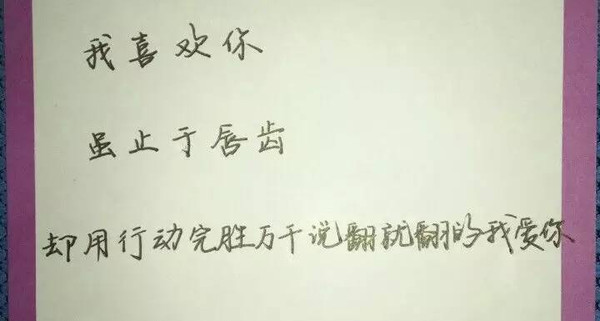 我喜欢你
虽止于唇齿
却用行动完胜万千说翻就翻的我爱你